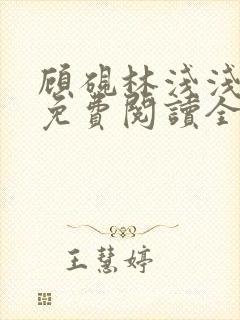 顧硯林淺淺
免費閱讀全
王慧婷